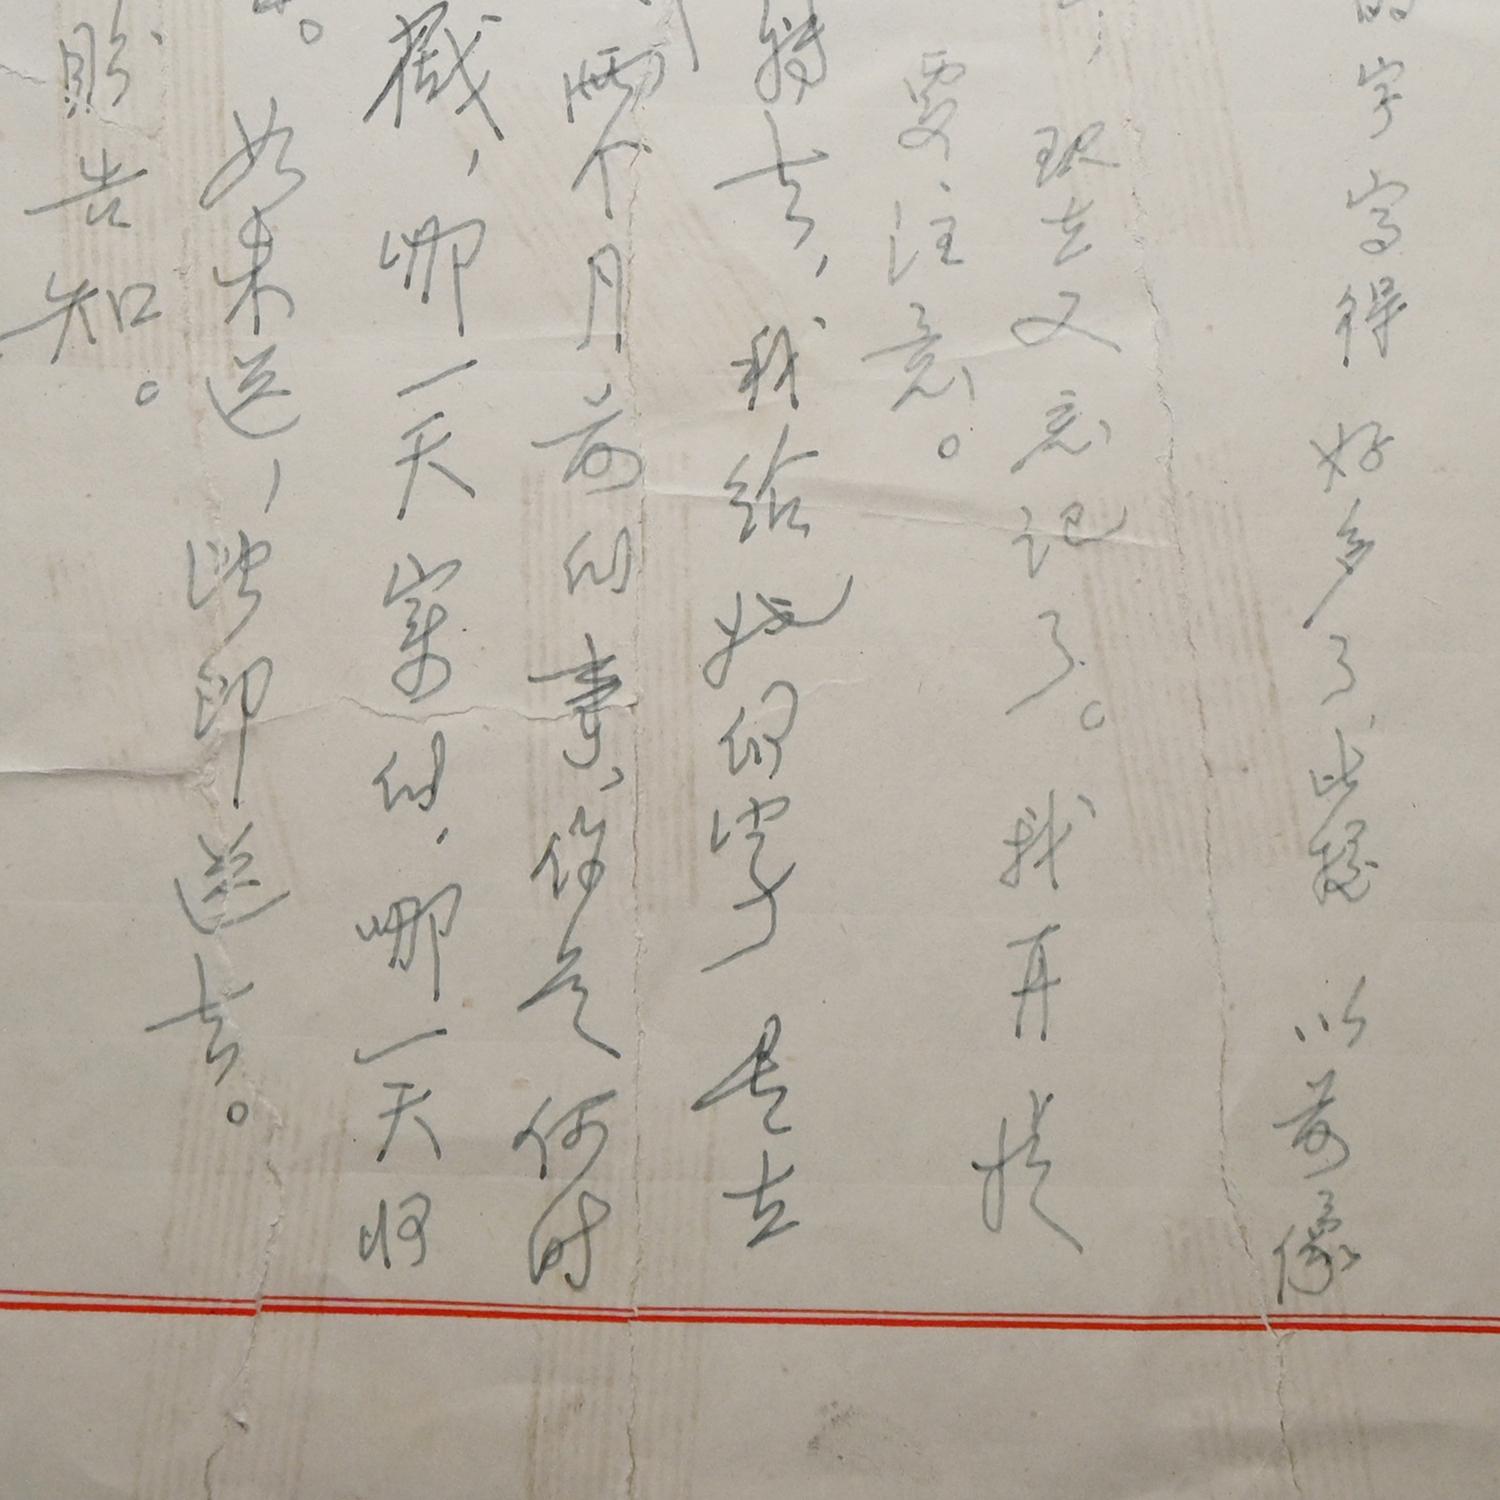 字写得好多了，比较 以前像
现在又忘记了。我再提
要注意。
特去，我给她们的字 是在
两个月前的事，你是何时
戳，哪一天寄的，哪一天收
如未送，皆即送去。
盼告知。